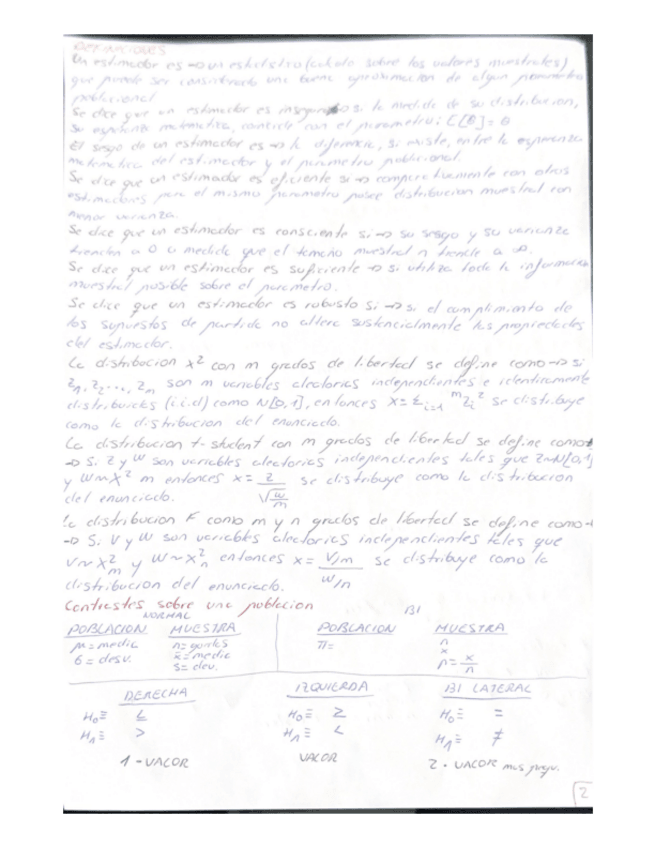 DEFINICIONES
Un estimador es → un estadistro (calculo sobre los valores muestrales)
que puede ser considerado una buena aproximacion de algun parametro
poblacional
Se dice que un estimador es insesgado si la medida de su distribucion,
su esperanza matematica, coincide con el parametro: E[θ] = θ
El sesgo de un estimador es → la diferencia, si existe, entre la esperanza
matematica del estimador y el parametro poblacional.
Se dice que un estimador es eficiente si → comparativamente con otros
estimadores para el mismo parametro posee distribucion muestral con
menor varianza.
Se dice que un estimador es consciente si → su sesgo y su varianza
tienden a 0 a medida que el tamaño muestral n tiende a ∞.
Se dice que un estimador es suficiente → si utiliza toda la informacion
muestral posible sobre el parametro.
Se dice que un estimador es robusto si → si el cumplimiento de
los supuestos de partida no altera sustancialmente las propiedades
del estimador.
La distribucion x² con m grados de libertad se define como → si
Z1, Z2..., Zn son m variables aleatorias independientes e identicamente
distribuidas (i.i.d) como N[0,1], entonces x = Σ i=1 m Zi² se distribuye
como la distribucion del enunciado.
La distribucion t-student con m grados de libertad se define como
→ Si Z y W son variables aleatorias independientes tales que Z~N[0,1]
y W~X² m entonces x = Z / √(W/m) se distribuye como la distribucion
del enunciado.
La distribucion F como m y n grados de libertad se define como
→ Si V y W son variables aleatorias independientes tales que
V~X²m y W~X²n entonces x = V/m / W/n se distribuye como la
distribucion del enunciado.
Contrastes sobre una poblacion
NORMAL BI
POBLACION MUESTRA POBLACION MUESTRA
μ = media n = π = n
σ = desv. x̄ = media x
s = desv. p = x/n
DERECHA IZQUIERDA BI LATERAL
H0 ≡ ≤ H0 ≡ ≥ H0 ≡ =
H1 ≡ > H1 ≡ < H1 ≡ ≠
1 - VALOR VALOR 2 · VALOR mas
2